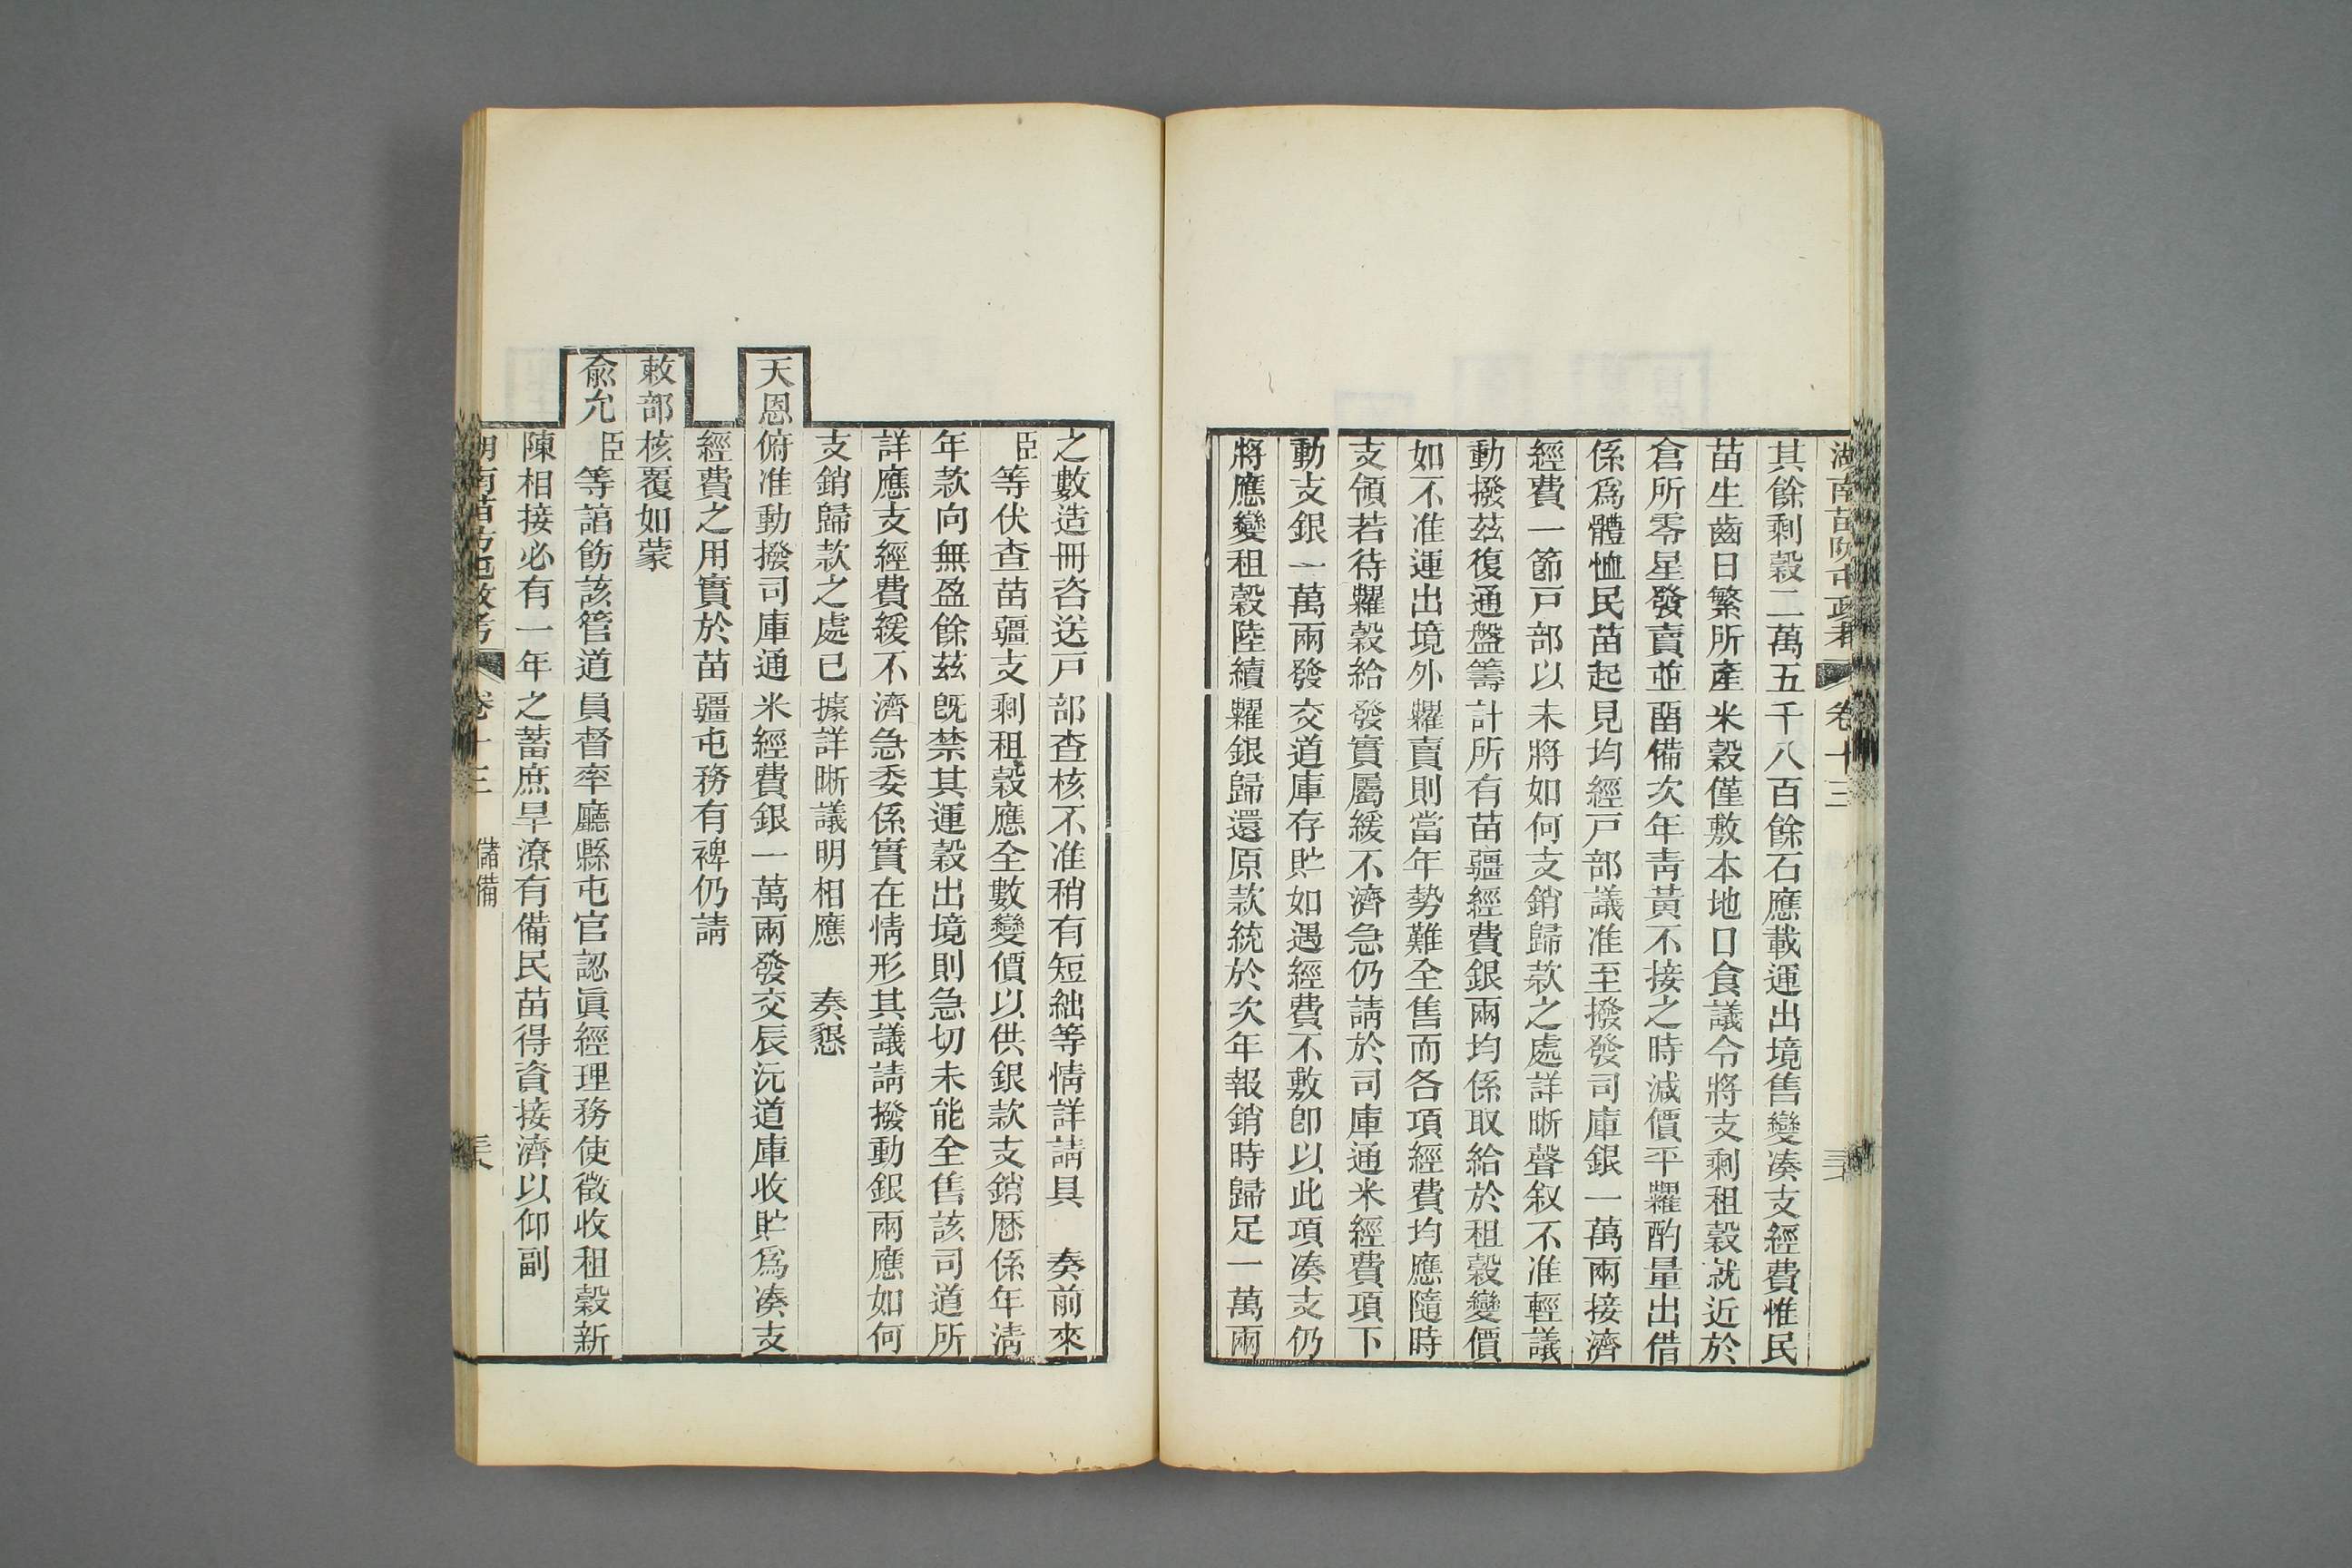 湖南苗防屯政考 卷十三
其餘剩穀二萬五千八百餘石應載運出境售變湊支經費惟民
苗生齒日繁所產米穀僅敷本地口食議令將支剩租穀就近於
倉所零星發賣並酉備次年靑黃不接之時減價平糶酌量出借
係爲體恤民苗起見均經戸部議准至撥發司庫銀一萬兩接濟
經費一節戸部以未將如何支銷歸款之處詳晰聲叙不准輕議
動撥茲復通盤籌計所有苗疆經費銀兩均係取給於租穀變價
如不准運出境外糶賣則當年勢難全售而各項經費均應隨時
支領若待糶穀給發實屬緩不濟急仍請於司庫通米經費項下
動支銀一萬兩發交道庫存貯如遇經費不敷卽以此項湊支仍
將應變租穀陸續糶銀歸還原款統於次年報銷時歸足一萬兩
之數造冊咨送戸部查核不准稍有短絀等情詳請具 奏前來
臣等伏查苗疆支剩租穀應全數變價以供銀款支銷歷係年淸
年款向無盈餘茲旣禁其運穀出境則急切未能全售該司道所
詳應支經費緩不濟急委係實在情形其議請撥動銀兩應如何
支銷歸款之處已據詳晰議明相應 奏懇
天恩俯准動撥司庫通米經費銀一萬兩發交辰沅道庫收貯爲湊支
經費之用實於苗疆屯務有裨仍請
敕部核覆如蒙
兪允臣等諮飭該管道員督率廳縣屯官認眞經理務使徵收租穀新
陳相接必有一年之蓄庶旱潦有備民苗得資接濟以仰副
湖南苗防屯政考 卷十三 儲備